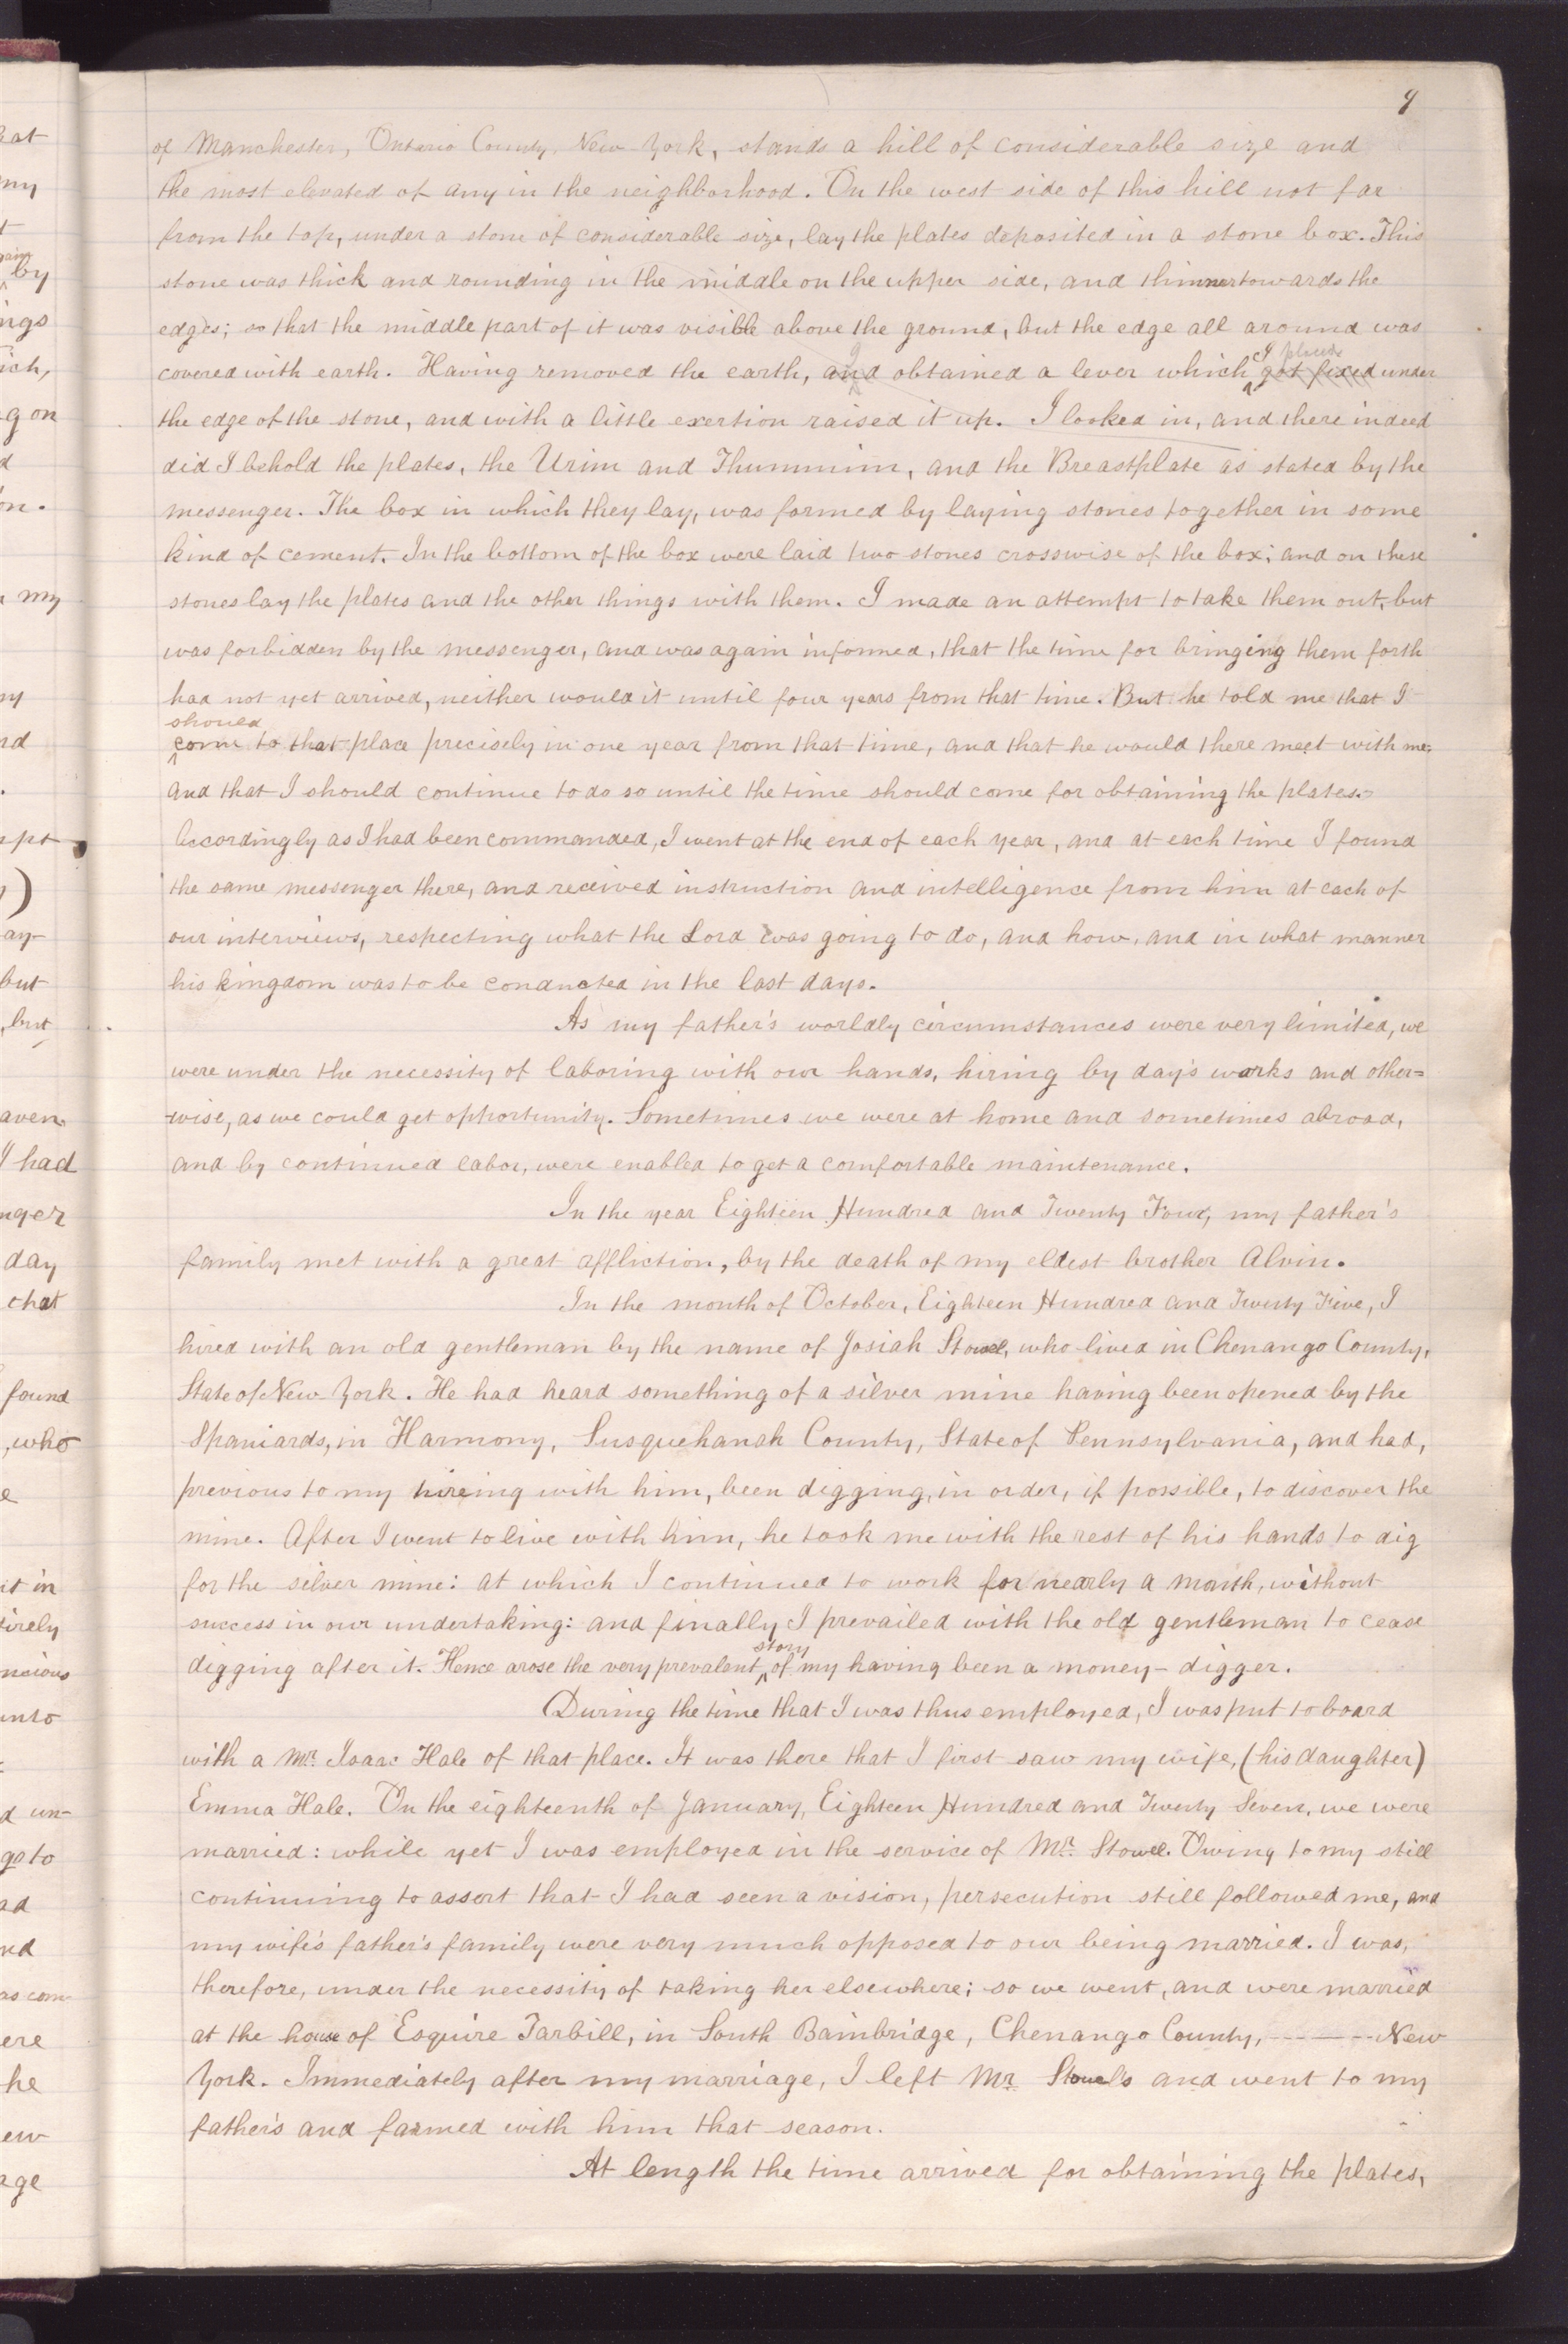 9
of Manchester, Ontario County, New York, stands a hill of considerable size and
the most elevated of any in the neighborhood. On the west side of this hill not far
from the top, under a stone of considerable size, lay the plates deposited in a stone box. This
stone was thick and rounding in the middle on the upper side, and thinner towards the
edges; so that the middle part of it was visible above the ground, but the edge all around was
I placed
covered with earth. Having removed the earth, and obtained a lever which got fixed under
the edge of the stone, and with a little exertion raised it up. I looked in, and there indeed
did I behold the plates, the Urim and Thummim, and the Breastplate as stated by the
messenger. The box in which they lay, was formed by laying stones together in some
kind of cement. In the bottom of the box were laid two stones crosswise of the box; and on these
stones lay the plates and the other things with them. I made an attempt to take them out, but
was forbidden by the messenger, and was again informed, that the time for bringing them forth
had not yet arrived, neither would it until four years from that time. But he told me that I
should
come to that place precisely in one year from that time, and that he would there meet with me;
and that I should continue to do so until the time should come for obtaining the plates.-
Accordingly as I had been commanded, I went at the end of each year, and at each time I found
the same messenger there, and received instruction and intelligence from him at each of
our interviews, respecting what the Lord was going to do, and how, and in what manner
his kingdom was to be conducted in the last days.
As my father's worldly circumstances were very limited, we
were under the necessity of laboring with our hands, hiring by day's works and other=
-wise, as we could get opportunity. Sometimes we were at home and sometimes abroad,
and by continued labor, were enabled to get a comfortable maintenance.
In the year Eighteen Hundred and Twenty Four, my father's
family met with a great affliction, by the death of my eldest brother Alvin.
In the month of October, Eighteen Hundred and Twenty Five, I
hired with an old gentleman by the name of Josiah Stowel, who lived in Chenango County,
State of New York. He had heard something of a silver mine having been opened by the
Spaniards, in Harmony, Susquehanah County, State of Pennsylvania, and had,
previous to my hireing with him, been digging, in order, if possible, to discover the
mine. After I went to live with him, he took me with the rest of his hands to dig
for the silver mine: at which I continued to work for nearly a month, without
success in our undertaking: and finally I prevailed with the old gentleman to cease
story
digging after it. Hence arose the very prevalent of my having been a money-digger.
During the time that I was thus employed, I was put to board
with a Mr. Isaac Hale of that place. It was there that I first saw my wife, (his daughter)
Emma Hale. On the eighteenth of January, Eighteen Hundred and Twenty Seven, we were
married: while yet I was employed in the service of Mr. Stowel. Owing to my still
continuing to assert that I had seen a vision, persecution still followed me, and
my wife's father's family were very much opposed to our being married. I was,
therefore, under the necessity of taking her elsewhere; so we went, and were married
at the house of Esquire Tarbill, in South Bainbridge, Chenango County, ------- New
York. Immediately after my marriage, I left Mr. Stowel's and went to my
father's and farmed with him that season.
At length the time arrived for obtaining the plates,